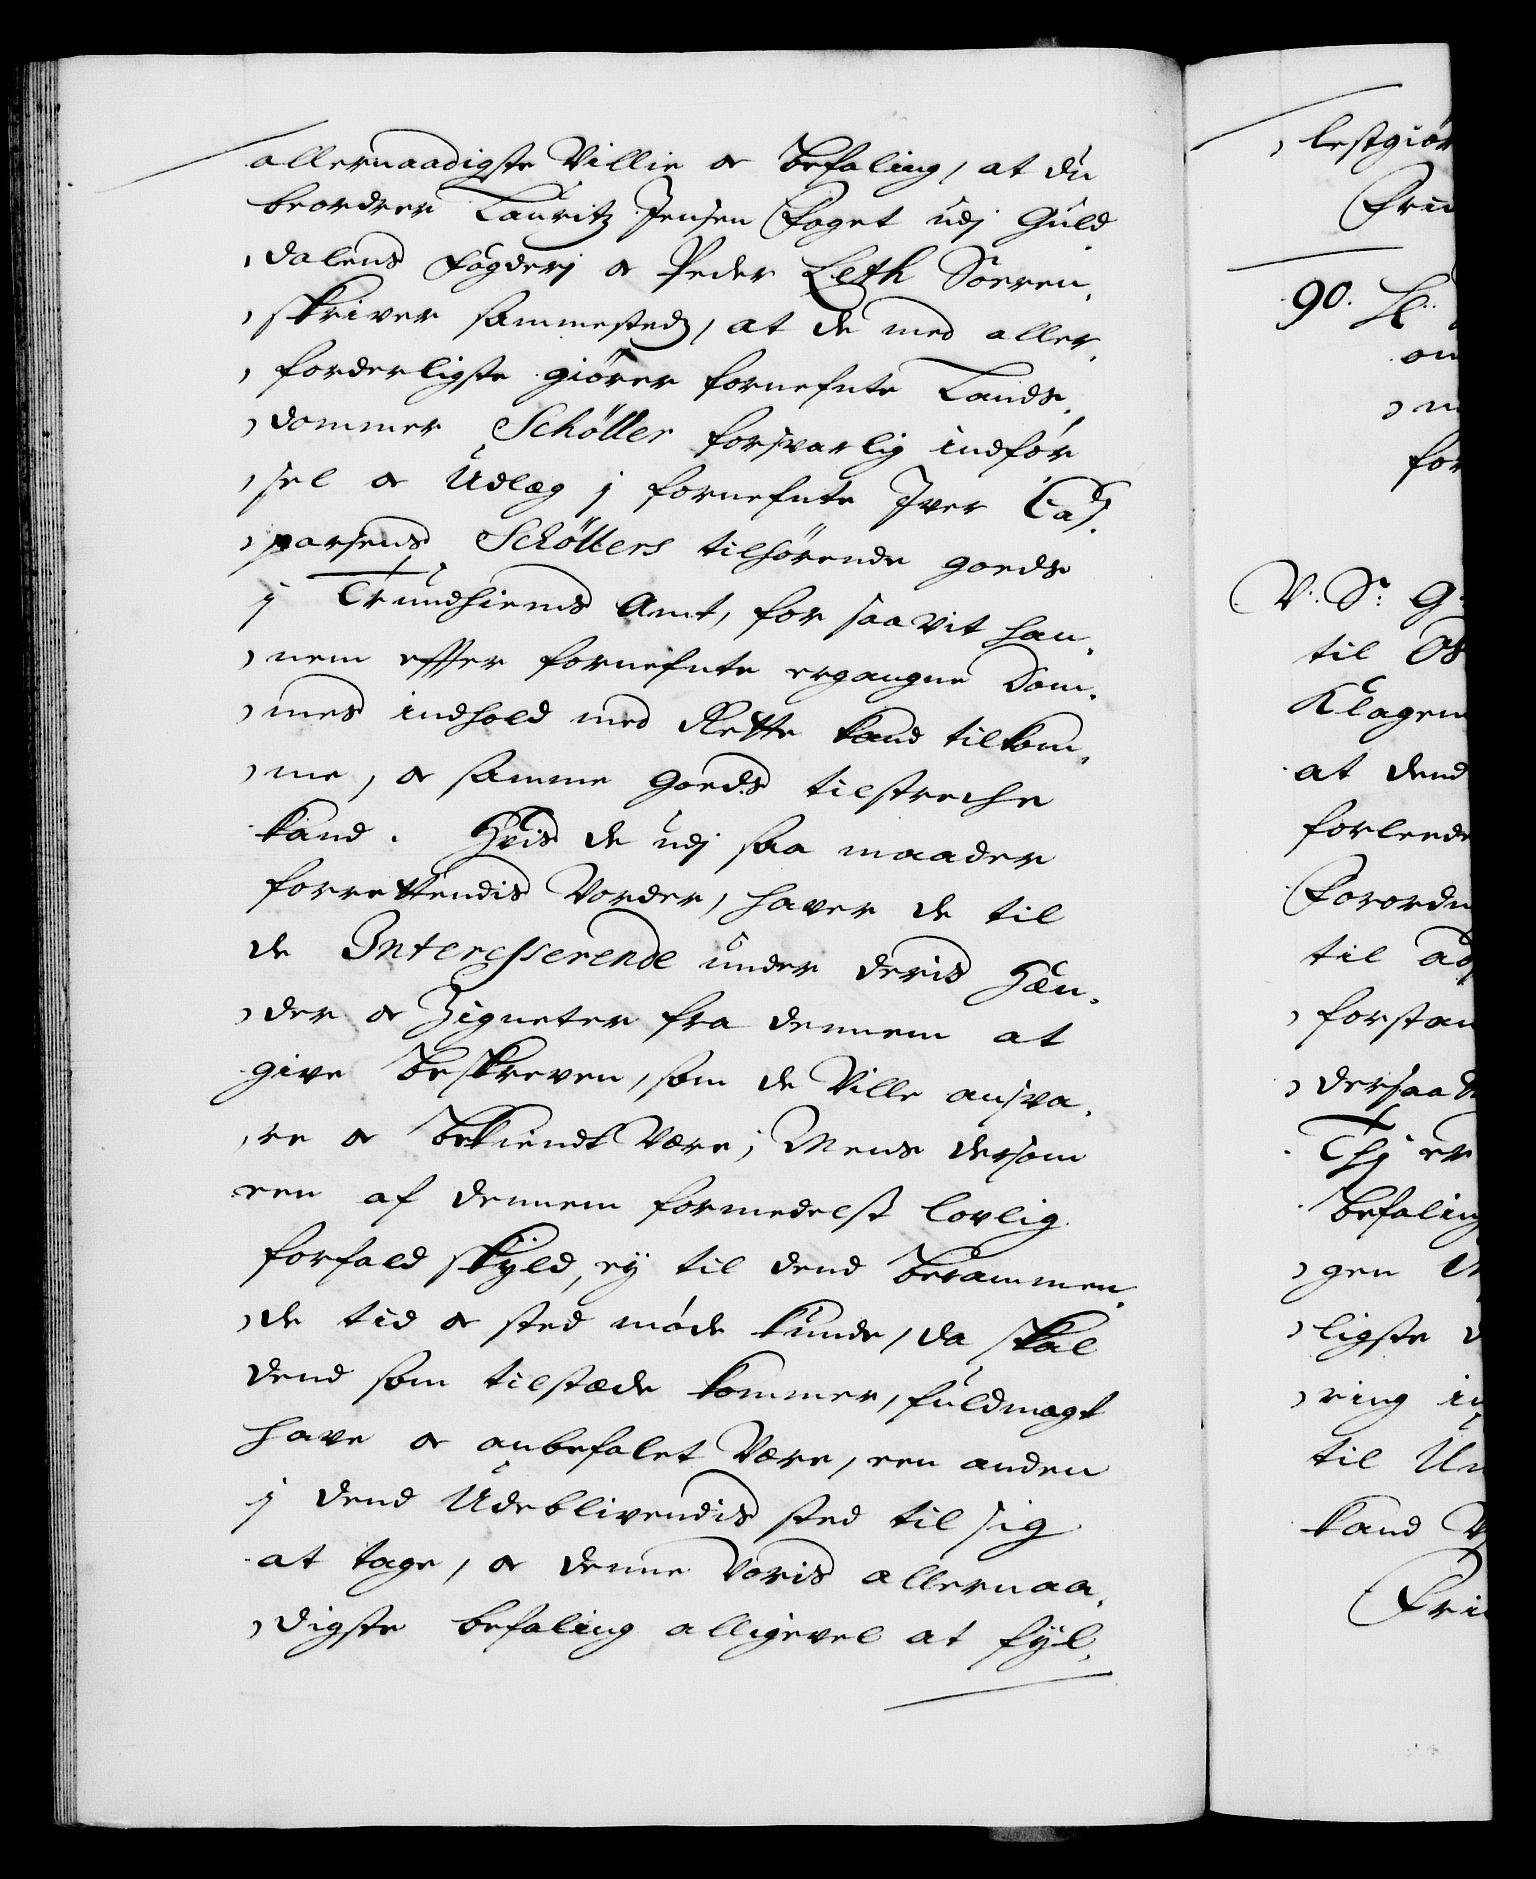 allernaadigste Villie oc Befaling, at du
beordrer Lauritz Jensen Foget udj Guld
dalens Fogderj oc Peder Leth Soeren,
skriver sammesteds, at de med aller,
forderligste giörer fornefnte Lands,
dommer Schöller forsvarlig indför
sel oc Udlæg j fornefnte Iver Cas,
parsens Schöllers tilhörende goeds
j Trundhiems Amt, for saa vit han,
nem effter fornefnte ergangne Dom,
mes indhold med Rette kand tilkom,
me, oc samme goeds tilstreche
kand. Hvis de udj saa maader
forrettendis vorder, haver de til
de Interesserende under deris Hæn,
der oc Zigneter fra dennem at
give beskreven, som de Ville ansva,
re oc bekiendt Være; Mens dersom
een af dennem formedelst lovlig
forfald skyld, ej til dend berammen,
de tid oc sted møde kunde, da skal
dend som tilstæde kommer, fuldmagt
have oc anbefalet Være, een anden
j dend Udeblivendis sted til sig
at tage, oc denne Voris allernaa,
digste befaling alligevel at fyl,
lestgiör
Frid
90.
on
for
V. Sr: G
til
Klagen
at dend
forleede
Forordn
til
forstan
dersaad
Thj er
Befaling
gen
ligste
ring
til
kand
Frid